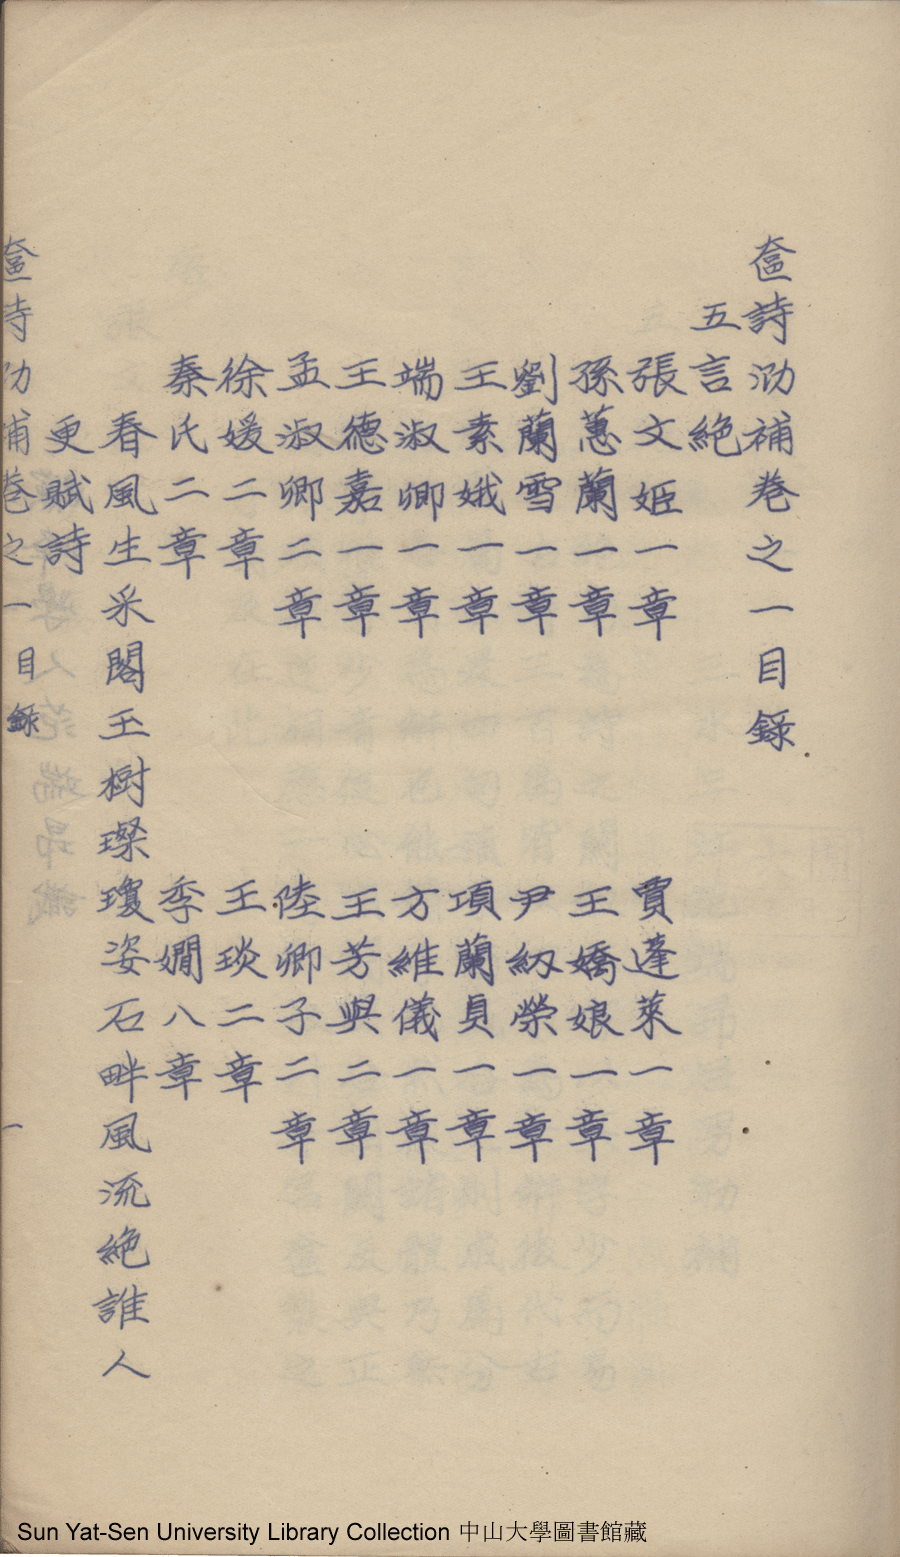 奩詩泐補卷之一目錄
五言絶
張文姬一章 賈蓬萊一章
孫蕙蘭一章 王嬌娘一章
劉蘭雪一章 尹紉榮一章
王素娥一章 項蘭貞一章
端淑卿一章 方維儀一章
王德嘉一章 王芳與二章
孟淑卿二章 陸卿子二章
徐媛二章 王琰二章
秦氏二章 季嫺八章
春風生采閣玉樹璨瓊姿石畔風流絶誰人
更賦詩
奩詩泐補卷之一目錄 一
Sun Yat-Sen University Library Collection 中山大學圖書館藏